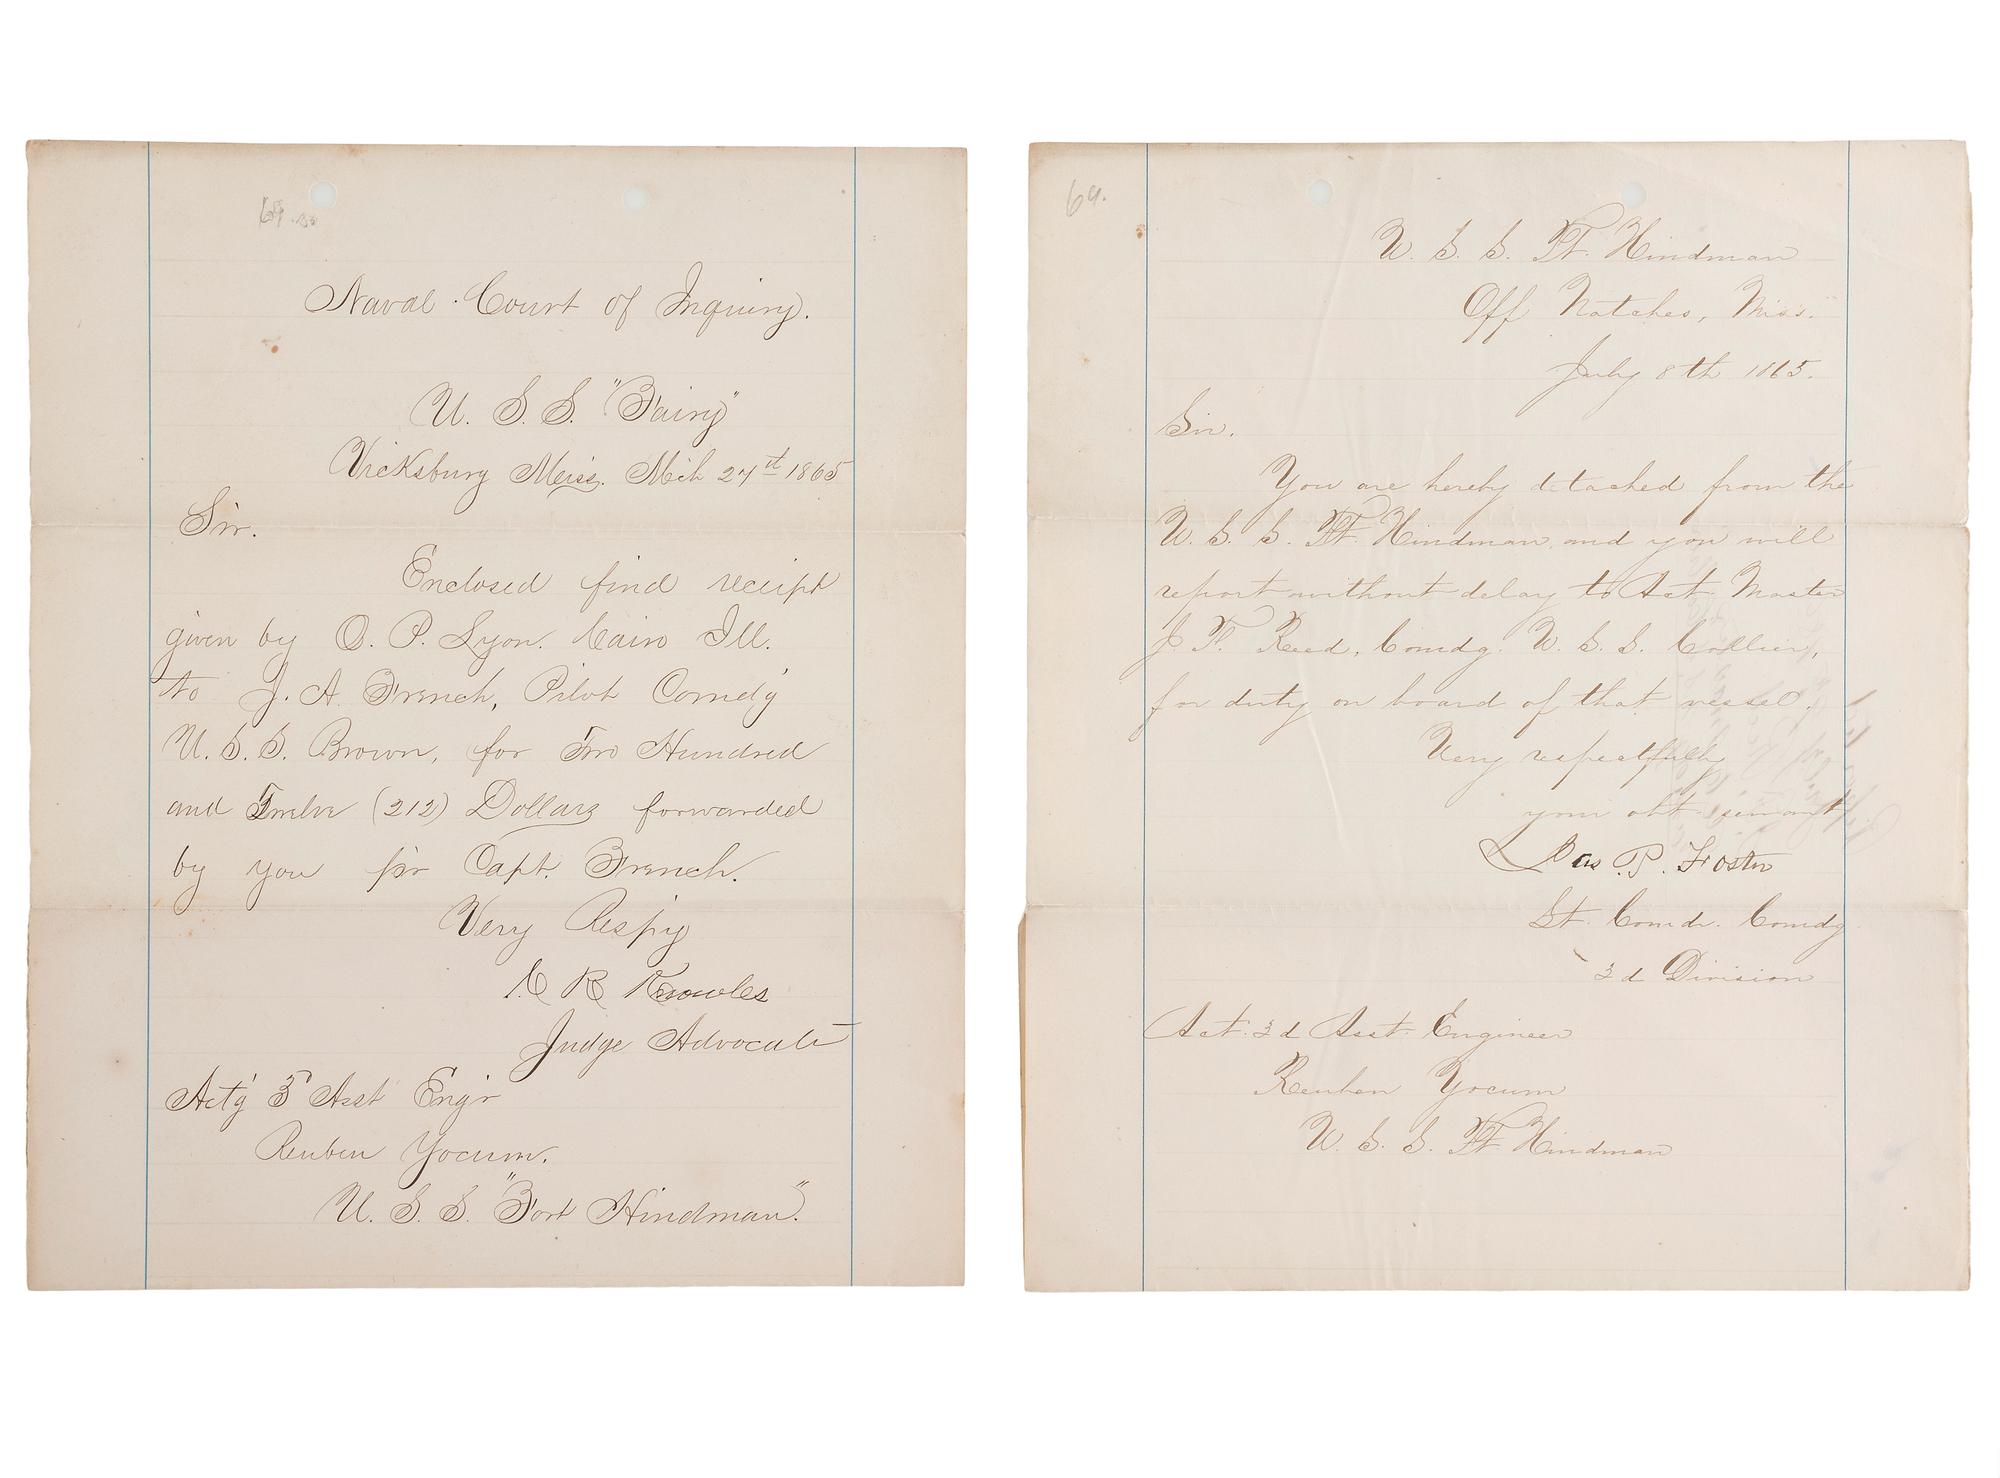 Naval Court of Inquiry.
U. S. S. "Fairy"
Vicksburg Meiss. Mch 27th 1865
Sir.
Enclosed find receipt
given by O. P. Lyon. Cairo Ill.
to J. A. French, Pilot Comd'g
U. S. S. Brown, for Two Hundred
and Twelve (212) Dollars forwarded
by you for Capt. French.
Very Resp'y
R Knowles
Judge Advocate
Act'g 3d Asst Eng'r
Reuben Yocum.
U. S. S. "Fort Hindman".
69.
U. S. S. Ft. Hindman
Off Natches, Miss.
July 8th 1865.
Sir.
You are hereby detached from the
U. S. S. Ft. Hindman and you will
report without delay to Act. Master
J. F. Reed, Comdg. U. S. S. Collier,
for duty on board of that vessel.
Very respectfully
your obt servant
Jas P. Foster
Lt. Comdr. Comdg
3d Division
Act. 3d Asst. Engineer
Reuben Yocum
U. S. S. Ft Hindman